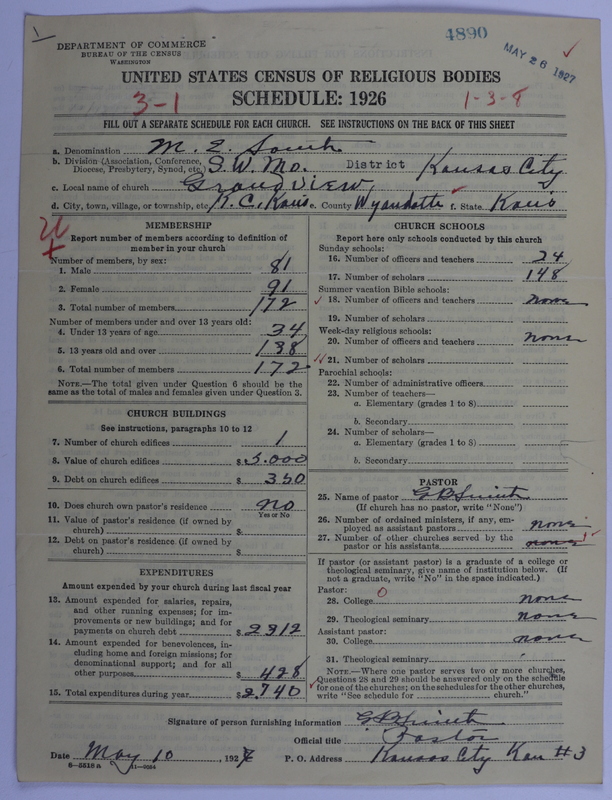 1
4890
MAY 26 1927
DEPARTMENT OF COMMERCE
BUREAU OF THE CENSUS
WASHINGTON
UNITED STATES CENSUS OF RELIGIOUS BODIES
3-1 SCHEDULE: 1926 1-3-8
FILL OUT A SEPARATE SCHEDULE FOR EACH CHURCH. SEE INSTRUCTIONS ON THE BACK OF THIS SHEET
a. Denomination M. E. South
b. Division (Association, Conference, Diocese, Presbytery, Synod, etc.) S. W. Mo. District Kansas City
c. Local name of church Grand View,
d. City, town, village, or township, etc. K. C. Kans e. County Wyandotte f. State Kans
MEMBERSHIP
Report number of members according to definition of
member in your church
Number of members, by sex:
1. Male 81
2. Female 91
3. Total number of members 172
Number of members under and over 13 years old:
4. Under 13 years of age 34
5. 13 years old and over 138
6. Total number of members 172
NOTE.—The total given under Question 6 should be
same as the total of males and females given under Question 3.
CHURCH BUILDINGS
See instructions, paragraphs 10 to 12
7. Number of church edifices 1
8. Value of church edifices $ 5.000
9. Debt on church edifices $ 350
10. Does church own pastor's residence no
Yes or No
11. Value of pastor's residence (if owned by
church) $
12. Debt on pastor's residence (if owned by
church) $
EXPENDITURES
Amount expended by your church during last fiscal year
13. Amount expended for salaries, repairs,
and other running expenses; for im-
provements or new buildings; and for
payments on church debt $ 2312
14. Amount expended for benevolences, in-
cluding home and foreign missions; for
denominational support; and for all
other purposes $ 428
15. Total expenditures during year $ 2.740
CHURCH SCHOOLS
Report here only schools conducted by this church
Sunday schools:
16. Number of officers and teachers 24
17. Number of scholars 148
Summer vacation Bible schools:
18. Number of officers and teachers none
19. Number of scholars
Week-day religious schools:
20. Number of officers and teachers none
21. Number of scholars
Parochial schools:
22. Number of administrative officers
23. Number of teachers—
a. Elementary (grades 1 to 8)
b. Secondary
24. Number of scholars—
a. Elementary (grades 1 to 8)
b. Secondary
PASTOR
25. Name of pastor G B Smith
(If church has no pastor, write "None")
26. Number of ordained ministers, if any, em-
ployed as assistant pastors none
27. Number of other churches served by the
pastor or his assistants none
If pastor (or assistant pastor) is a graduate of a college or
theological seminary, give name of institution below. (If
not a graduate, write "No" in the space indicated.)
Pastor: 0
28. College none
29. Theological seminary none
Assistant pastor:
30. College none
31. Theological seminary
NOTE.—Where one pastor serves two or more churches,
Questions 28 and 29 should be answered only on the schedule
for one of the churches; on the schedules for the other churches,
write "See schedule for church."
Signature of person furnishing information G B Smith
Official title Pastor
Date May 10, 1927 P. O. Address Kansas City Kan # 3